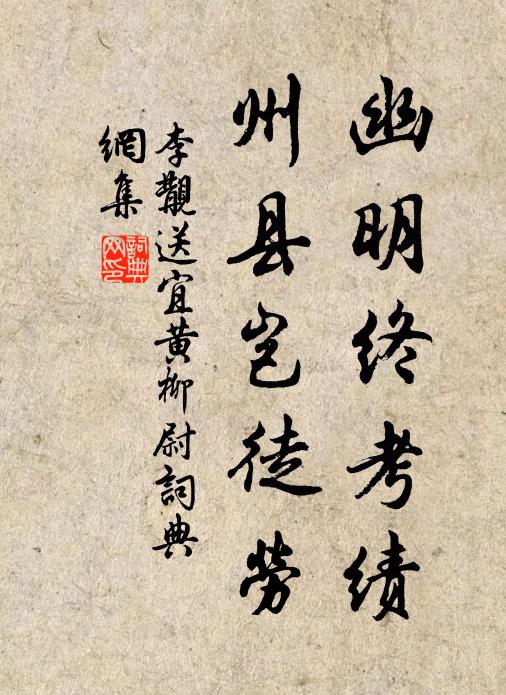 幽明终考绩
州县岂徒劳
李觀送宜黄柳尉詞典
網集
詞典
网印